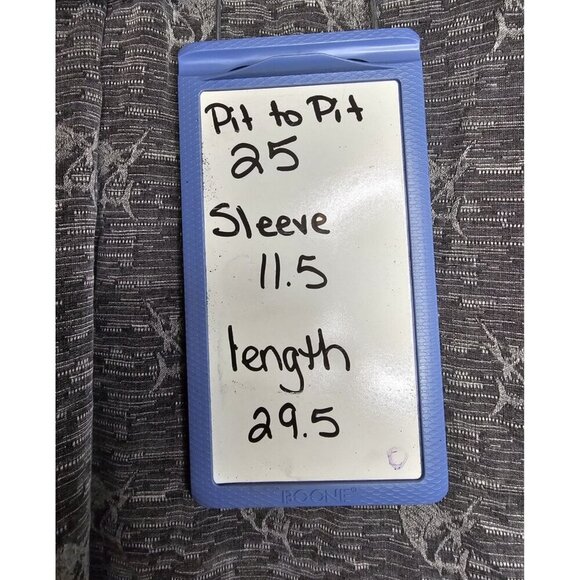 Pit to Pit
25
Sleeve
11.5
length
29.5
BOONE